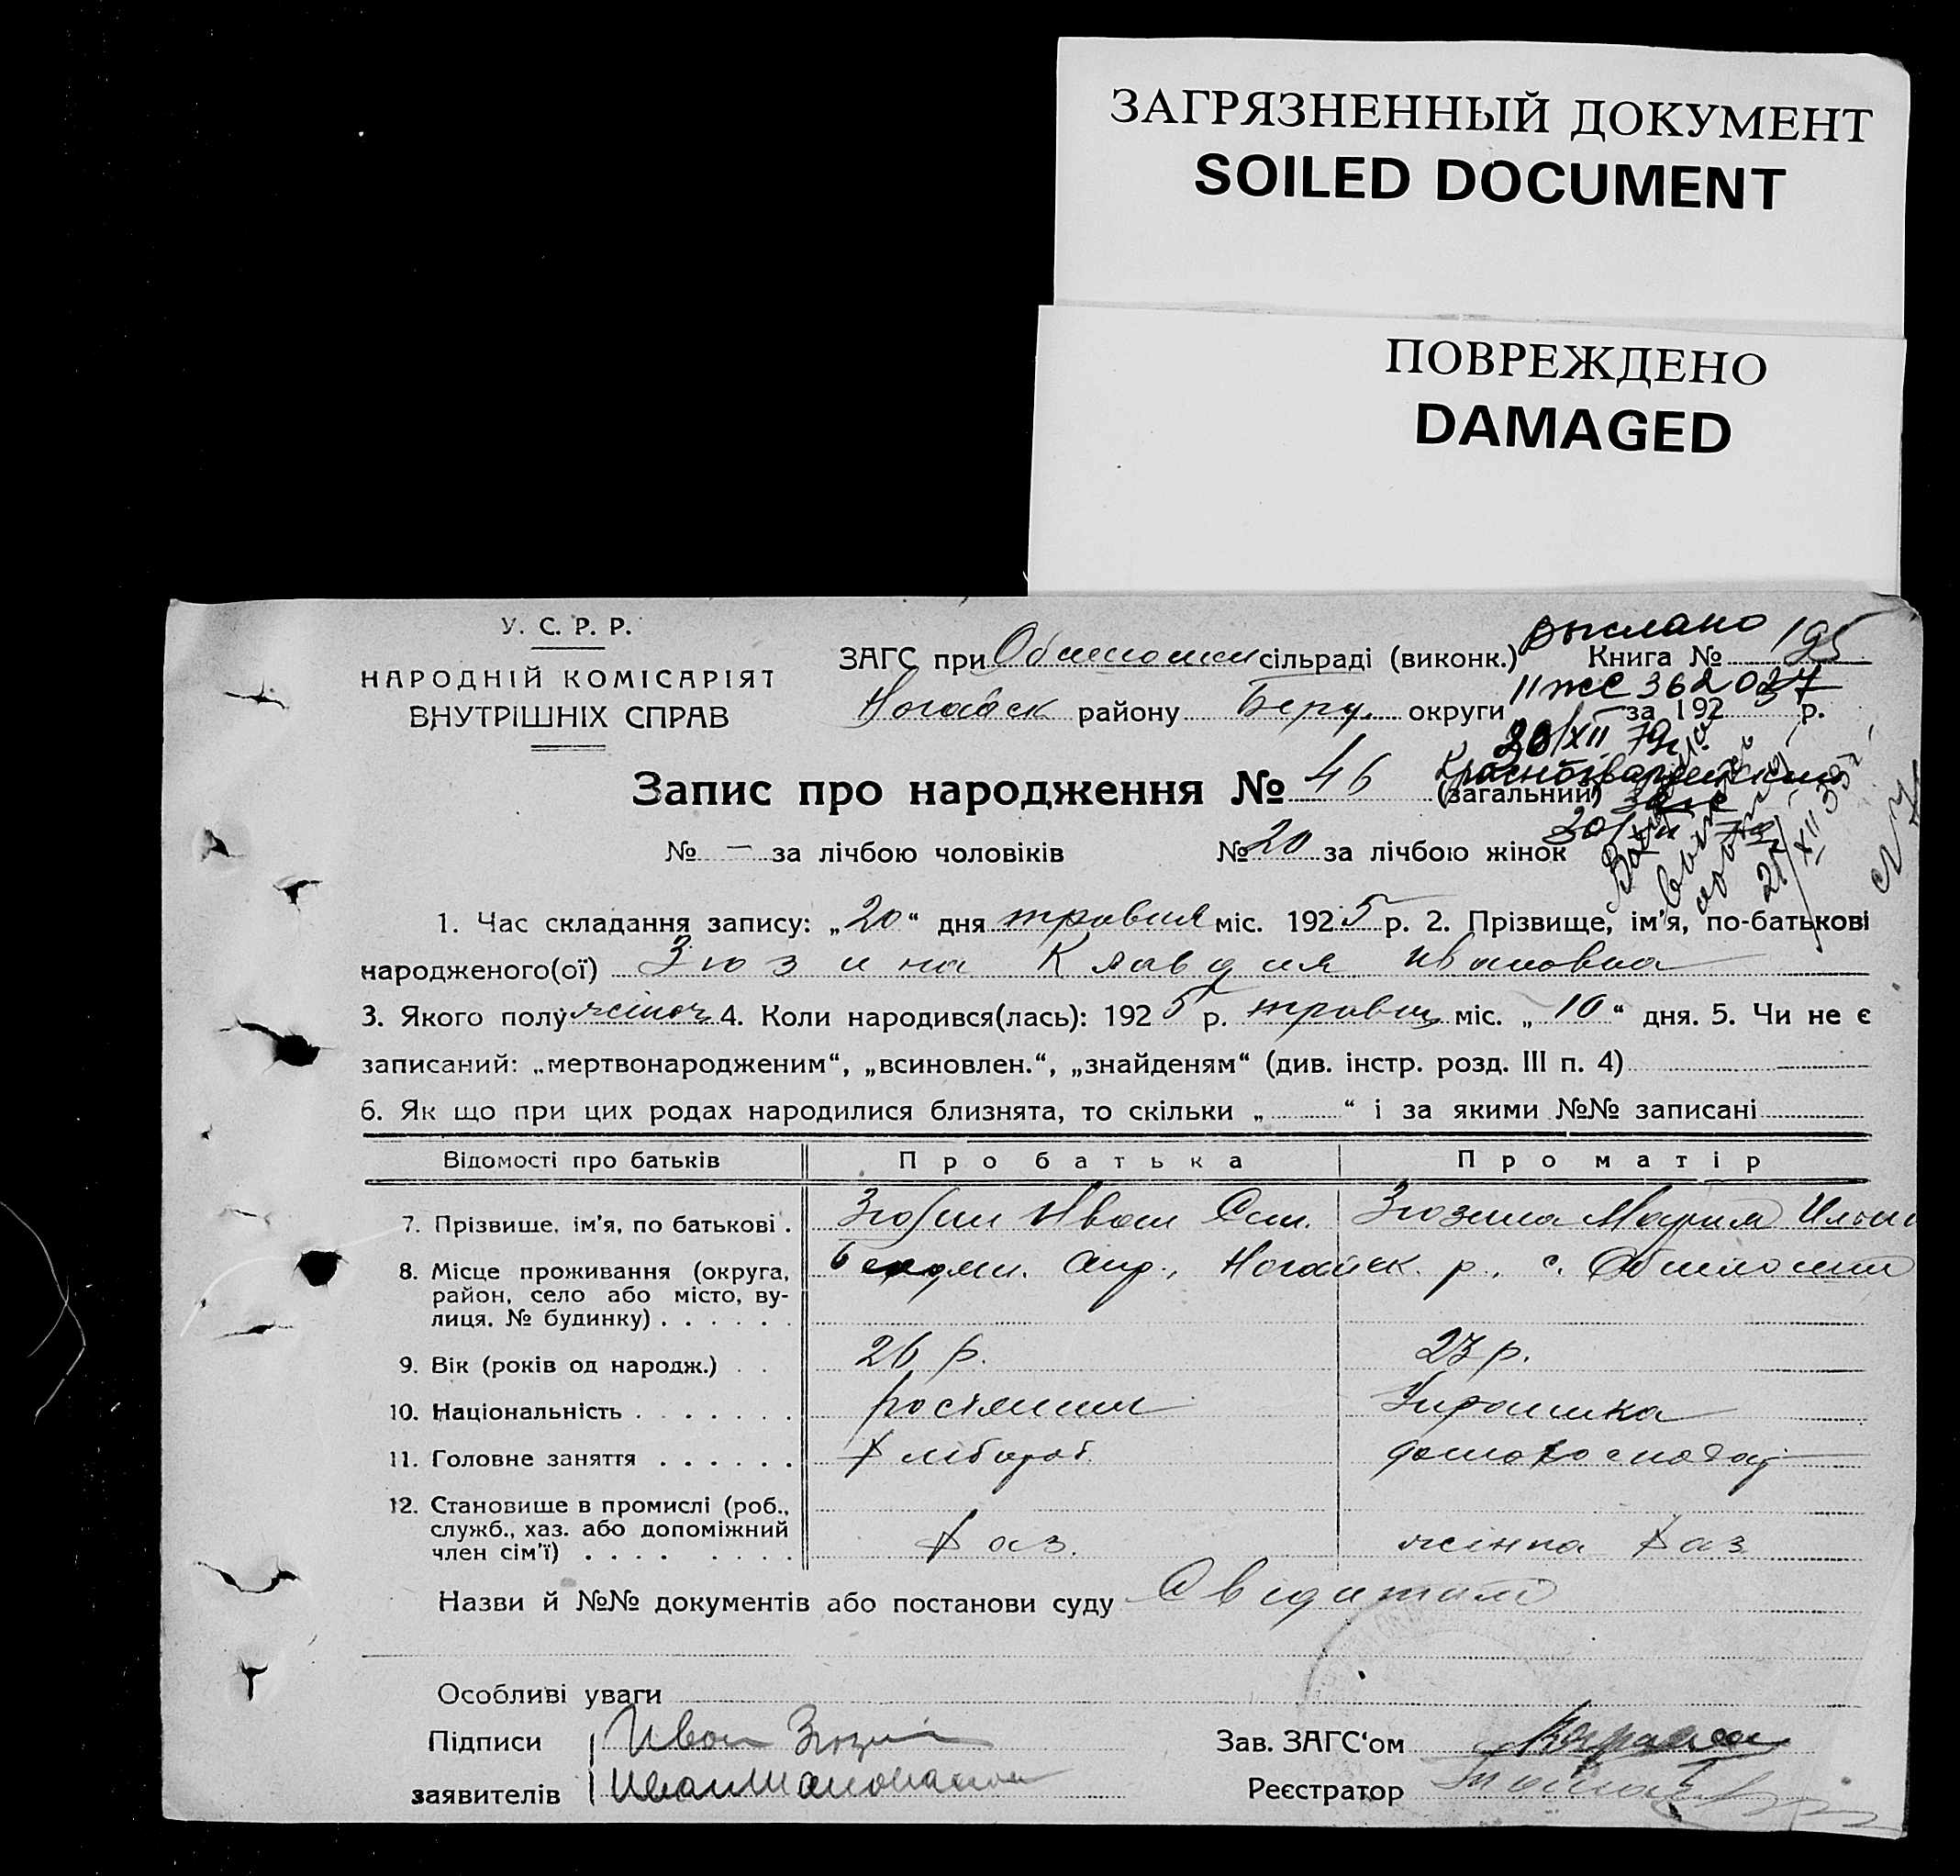 ЗАГРЯЗНЕННЫЙ ДОКУМЕНТ
SOILED DOCUMENT
ПОВРЕЖДЕНО
DAMAGED
У. С. Р. Р.
НАРОДНІЙ КОМІСАРІЯТ
ВНУТРІШНІХ СПРАВ
выслано
ЗАГС при сільраді (виконк.) Книга № 195
II ЖС 362027
Ногайск району Берд. округи за 192 р.
20/XII 79
Запис про народження № 46 (загальний)
Красногвардейским
№ — за лічбою чоловіків № 20 за лічбою жінок
21/XII 39
1. Час складання запису: „20“ дня травня міс. 1925 р. 2. Прізвище, ім'я, по-батькові
народженого(ої) Зюзина Клавдия Ивановна
3. Якого полу жіноч. 4. Коли народився(лась): 1925 р. травня міс. „10“ дня. 5. Чи не є
записаний: „мертвонародженим“, „всиновлен.“, „знайденям“ (див. інстр. розд. III п. 4)
6. Як що при цих родах народилися близнята, то скільки „ “ і за якими №№ записані
Відомості про батьків Про батька Про матір
7. Прізвище, ім'я, по батькові . Зюзин Иван Зюзина Мария
8. Місце проживання (округа, район, село або місто, вулиця, № будинку) . . . . . . Ногайск. р., с.
9. Вік (років од народж.) . . 26 р. 23 р.
10. Національність . . . . . . . росіянин Украинка
11. Головне заняття . . . . . . хлібороб. домогосподар
12. Становище в промислі (роб., служб., хаз. або допоміжний член сім'ї) . . . . . . . . Хаз. жінка Хаз
Назви й №№ документів або постанови суду
Особливі уваги
Підписи Иван Зюзин Зав. ЗАГС‘ом
заявителів Иван Реєстратор